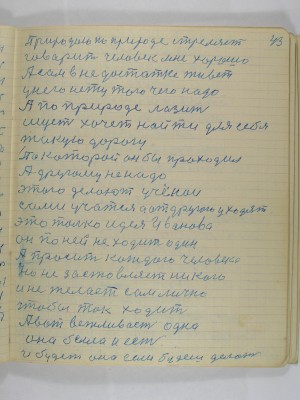 43
Природа по природе стремяет
говарит человек мне харашо
А сам в недостатке живет
у него нету того чего надо
А по природе лазит
ищет хочет найти для себя
такую дорогу
По которой он бы проходил
А другому не надо
этого делоют учёнаи
сами учатся а от других уходят
это толко идея Иванова
он по ней не ходит один
А просит каждаго человека
но не заставляет никого
и не желает сам лично
чтобы так ходит
А вот вежливаст одна
она была и ест
и будет она если будеш делат